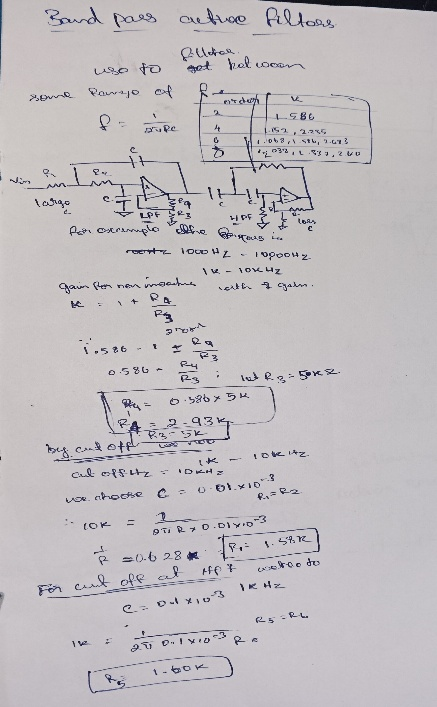 Band pass active filters
use to between
some range of
f = 1/2πRC
order K
2 1.586
4 1.152, 2.235
6 1.068, 1.586, 2.483
8
Vin R1 R2 C
large C C R4 C C
LPF R3 HPF less C
For example the is
1000Hz - 10000Hz
1K - 10KHz
gain for non with gain.
K = 1 + R4/R3
1.586 - 1 = R4/R3
0.586 = R4/R3 ; let R3 = 5KΩ
R4 = 0.586 x 5K
R4 = 2.93K
R3 = 5K
by cut off
1K - 10KHz
cut off Hz = 10KHz
we choose C = 0.01x10-3
R1=R2
∴ 10K = 1/2πR x 0.01x10-3
1/R = 0.628 R1 = 1.58K
For cut off at HP
C = 0.1 x 10-3 1KHz
R5=R6
1K = 1/2π 0.1x10-3 R
R5 1.60K